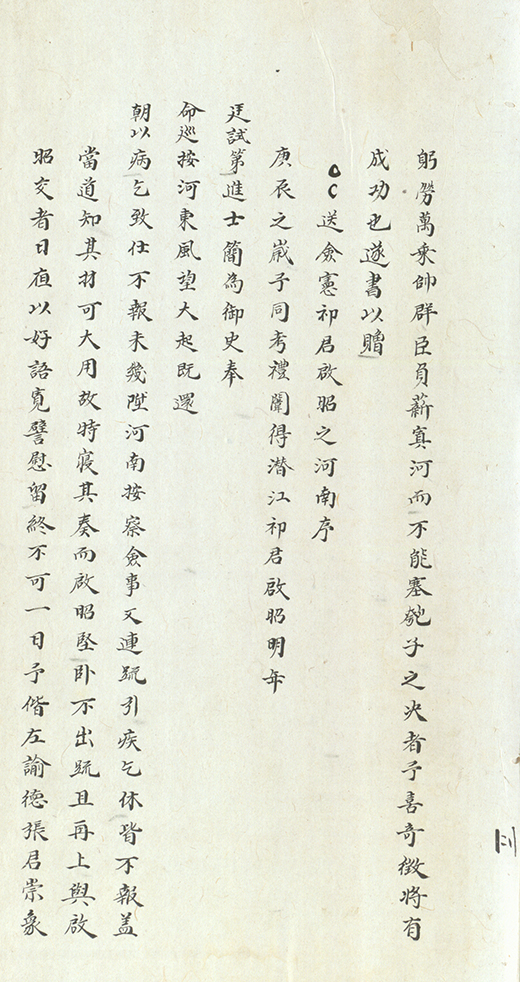 躬勞萬乘帥群臣負薪寘河而不能塞瓠子之决者予喜奇徵將有
成功也遂書以贈
送僉憲初君啟昭之河南序
庚辰之嵗予同考禮闈得潜江初君啟昭明年
廷試第進士簡為御史奉
命巡按河東風望大起既還
朝以病乞致仕不報未幾陞河南按察僉事又連䟽引疾乞休皆不報盖
當道知其材可大用故特寢其奏而啟昭堅卧不出䟽且再上與啟
昭交者日夜以好語寛譬慰留終不可一日予偕左諭德張君崇象